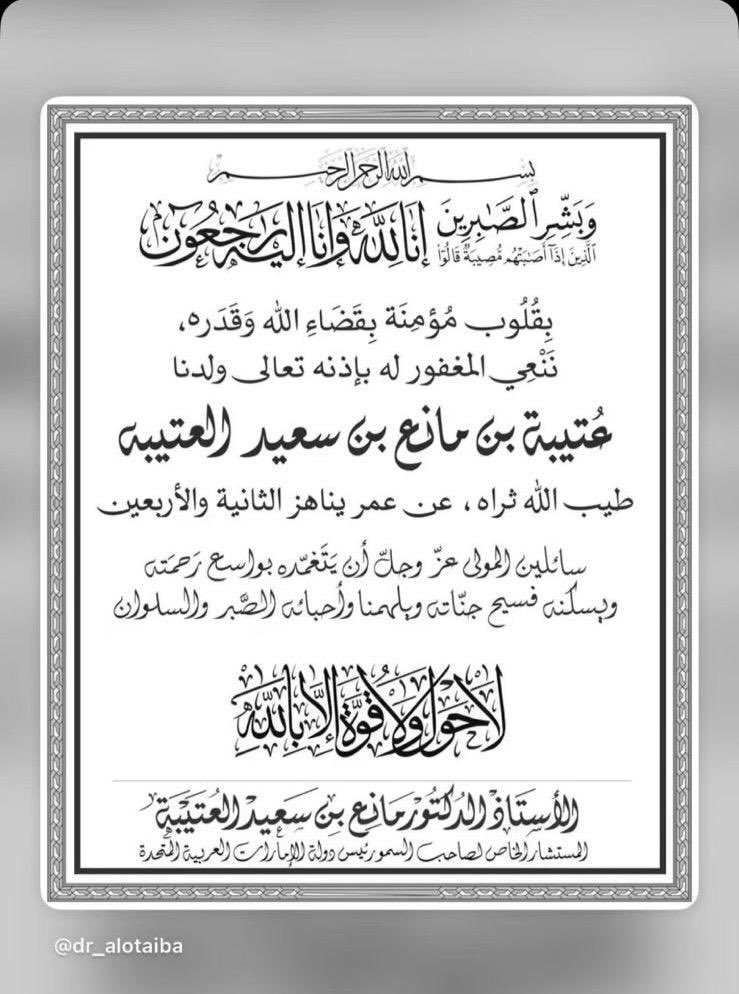 بسم الله الرحمن الرحيم
وَبَشِّرِ ٱلصَّٰبِرِينَ
ٱلَّذِينَ إِذَآ أَصَٰبَتۡهُم مُّصِيبَةٞ قَالُوٓاْ
إنا لله وإنا إليه راجعون
بِقُلُوب مُؤمِنَة بِقَضَاءِ الله وَقَدَره،
نَنْعِي المغفور له بإذنه تعالى ولدنا
عُتيبة بن مانع بن سعيد العتيبه
طيب الله ثراه ، عن عمر يناهز الثانية والأربعين
سائلين المولى عزّ وجلّ أن يَتَغمّده بواسع رَحمَته
ويسكنه فسيح جنّاته ويلهمنا وأحبائه الصَّبر والسلوان
لا حول ولا قوة إلا بالله
الأستاذ الدكتور مانع بن سعيد العتيبة
المستشار الخاص لصاحب السمو رئيس دولة الإمارات العربية المتحدة
@dr_alotaiba